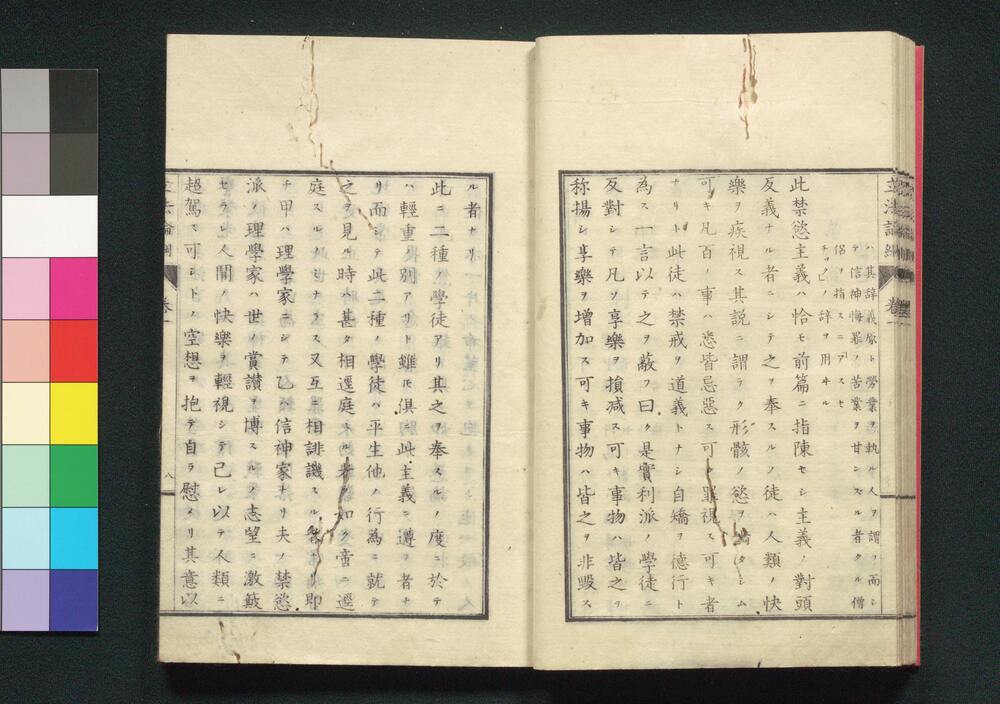 立法論綱
ハ其辞義原ト労業ヲ執ル人ヲ謂フ而シ
テ信神悔罪ノ苦業ヲ甘ンズル者タル僧
侶ヲ指スニアスセ
チッピノ辞ヲ用ヰル
此禁慾主義ハ恰モ前篇ニ指陳セシ主義ノ對頭
反義ナル者ニシテ之ヲ奉スルノ徒ハ人類ノ快
樂ヲ疾視ス其説ニ謂ラク形骸ノ慾ヲシム
可キ凡百ノ事ハ悉皆忌惡ス可ク罪視ス可キ者
ナリト此徒ハ禁戒ヲ道義トナシ自矯ヲ德行ト
為ス一言以テ之ヲ蔽フ曰ク是實利派ノ學徒ニ
反對シテ凡ソ享樂ヲ損減ス可キ事物ハ皆之ヲ
称揚シ享樂ヲ增加ス可キ事物ハ皆之ヲ非毀ス
ル者ナリ
此ニ二種ノ學徒アリ其之ヲ奉スルノ度ニ於テ
ハ輕重ノ別アリト雖モ俱ニ此主義ニ遵フ者ナ
リ而シテ此二種ノ學徒ハ平生他ノ行為ニ就テ
之ヲ見ル時ハ甚タ相逕庭スル者ノ如ク啻ニ逕
庭スルノミナラス又互ニ相誹譏スル者ナリ即
チ甲ハ理學家ニシテ乙ハ信神家ナリ夫ノ禁慾
派ノ理學家ハ世ノ賞讃ヲ博スルノ志望ニ激鼓
セラレ人間ノ快樂ヲ輕視シテ己レ以テ人類ニ
超駕ス可シトノ空想ヲ抱テ自ラ慰メリ其意以
立法論綱 卷一 八